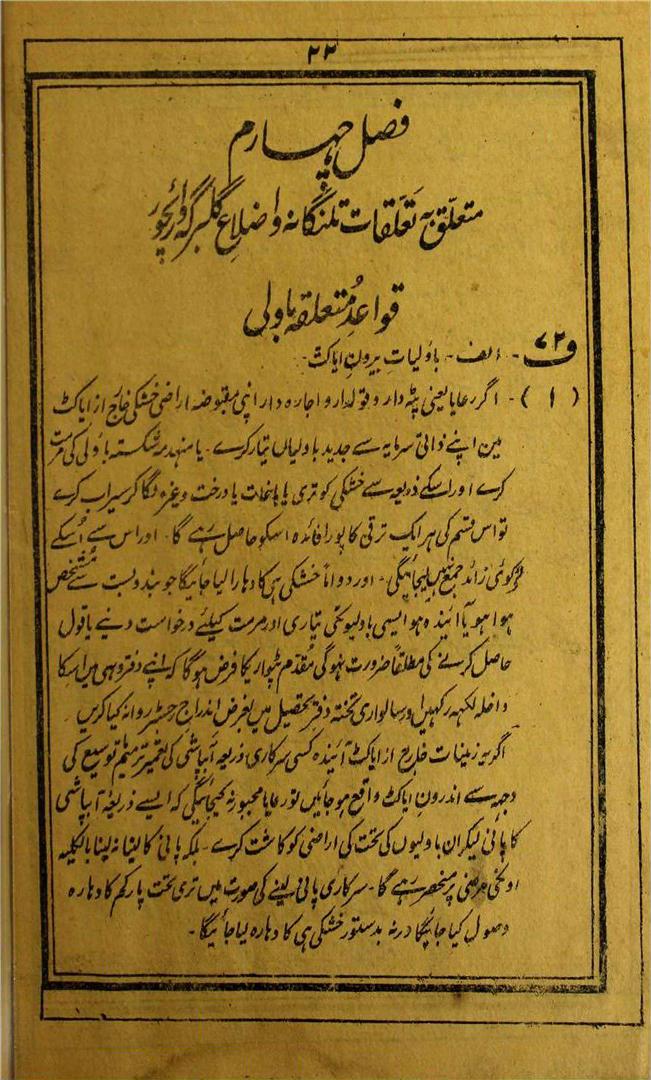 ۲۲
فصل چہارم
متعلق بہ تعلّقات تلنگانہ و اضلاع گلبرگہ و رائچور
قواعدِ متعلقہ باولی
ف ۷۲ - الف - باؤلیات بیرون ایاکٹ -
( ۱ ) - اگر رعایا یعنی پٹہ دار و قولدار و اجارہ دار اپنی مقبوضہ اراضی خشکی خارج از ایاکٹ
مین اپنے ذاتی سرمایہ سے جدید باولیاں تیار کرے - یا منہدمہ شکستہ باؤلی کی مرمت
کرے اور اسکے ذریعہ سے خشکی کو تری یا باغات یا درخت وغیرہ لگا کر سیراب کرے
تو اس قسم کی ہر ایک ترقی کا پورا فائدہ اسکو حاصل رہے گا - اور اس سے اُسکے
کوئی زائد جمع نہیں لیجائیگی - اور دواماً خشکی ہی کا دہارا لیا جائیگا جو بندوبست سے مُشخص
ہوا ہو یا آئیندہ ہو ایسی باولیونکی تیاری اور مرمت کیلئے درخواست دنیے یا قول
حاصل کرنے کی مطلقاً ضرورت نہوگی مقدم پٹواریکا فرض ہوگا کہ اپنے دفتر دیہی میں اسکا
داخلہ لکہہ رکہیں اور سالواری تختہ دفتر تحصیل میں بغرض اندراج رجسٹر روانہ کیا کریں
اگر یہ زمینات خارج از ایاکٹ آئیندہ کسی سرکاری ذریعہ آبپاشی کی تعمیر ترمیم توسیع کی
وجہہ سے اندرون ایاکٹ واقع ہو جائیں تو رعایا مجبور نہ کیجائیگی کہ ایسے ذریعۂ آبپاشی
کا پانی لیکر ان باولیوں کی تحت کی اراضی کو کاشت کرے - بلکہ پانی کا لینا نہ لینا بالکلیہ
اونکی مرضی پر منحصر رہے گا - سرکاری پانی لینے کی صورت میں تری تحت پارکم کا دہارہ
وصول کیا جائیگا ورنہ بدستور خشکی ہی کا دہارہ لیا جائیگا -